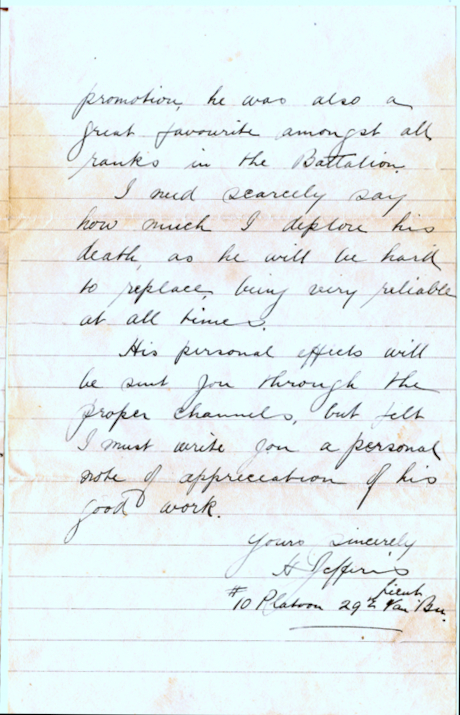 promotion, he was also a
great favourite amongst all
ranks in the Battalion.
I need scarcely say
how much I deplore his
death, as he will be hard
to replace, being very reliable
at all times.
His personal effects will
be sent you through the
proper channels, but felt
I must write you a personal
note of appreciation of his
good work.
Yours sincerely
H Jefferis
Lieut
#10 Platoon 29th Van. Bn.